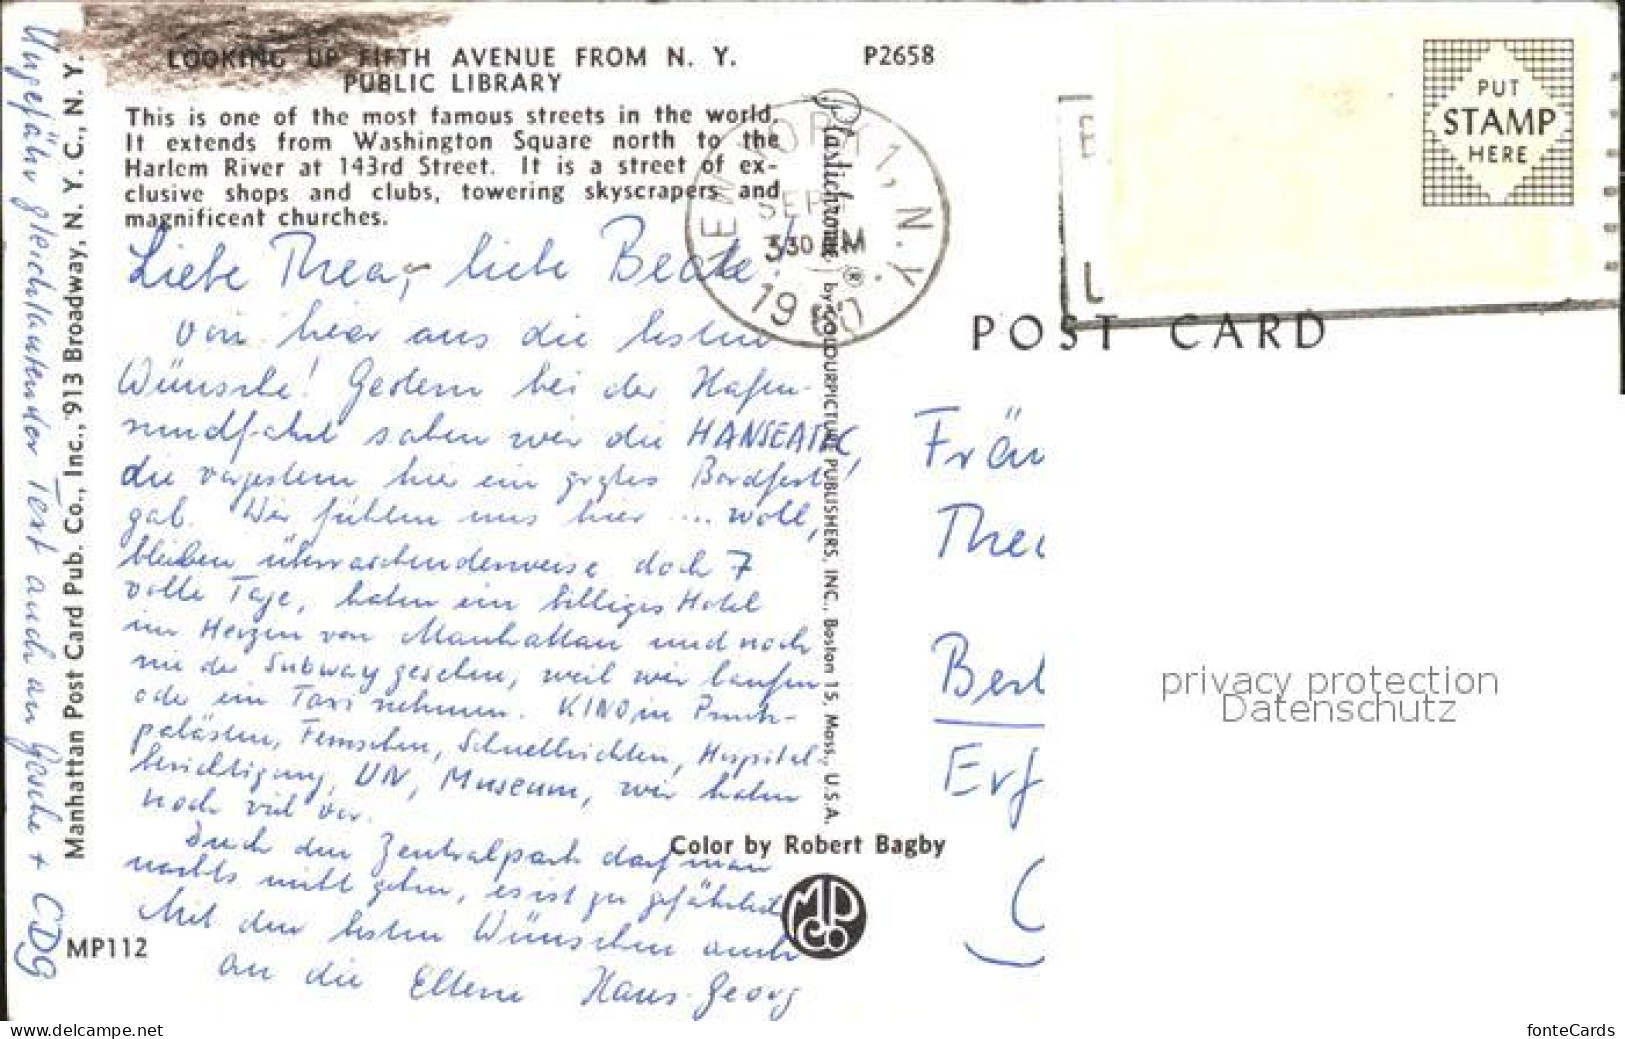 LOOKING UP FIFTH AVENUE FROM N. Y.
PUBLIC LIBRARY
P2658
This is one of the most famous streets in the world.
It extends from Washington Square north to the
Harlem River at 143rd Street. It is a street of ex-
clusive shops and clubs, towering skyscrapers and
magnificent churches.
Liebe Thea, liebe Beate!
von hier aus die besten
Wünsche! Gestern bei der Hafen-
rundfahrt sahen wir die HANSEATIC,
die vorgestern hier ein großes Bordfest
gab. Wir fühlen uns hier .... wohl,
bleiben überraschenderweise doch 7
volle Tage, haben ein billiges Hotel
im Herzen von Manhattan und noch
nie die Subway gesehen, weil wir laufen
oder ein Taxi nehmen. KINO in Prunk-
palästen, Fernsehen, Schnellrichten, Hospital-
besichtigung, UN, Museum, wir haben
noch viel vor.
Durch den Zentralpark darf man
nachts nicht gehen, es ist zu gefährlich
Mit den besten Wünschen auch
an die Eltern Hans-Georg
Ungefähr gleichlautender Text auch an Gosche + CDG
Manhattan Post Card Pub. Co., Inc., 913 Broadway, N. Y. C., N. Y.
MP112
Plastichrome ® by COLOURPICTURE PUBLISHERS, INC., Boston 15, Mass., U.S.A.
Color by Robert Bagby
MPCo
NEW YORK 1, N.Y.
SEP
530 PM
19
PUT
STAMP
HERE
POST CARD
Fräu
Thea
Berl
Erf
privacy protection
Datenschutz
www.delcampe.net
fonteCards